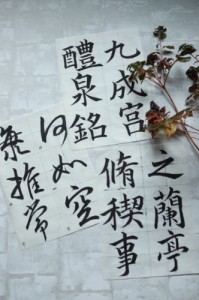 九成宮
醴泉銘
之蘭亭
脩稧事
何如空
無推常